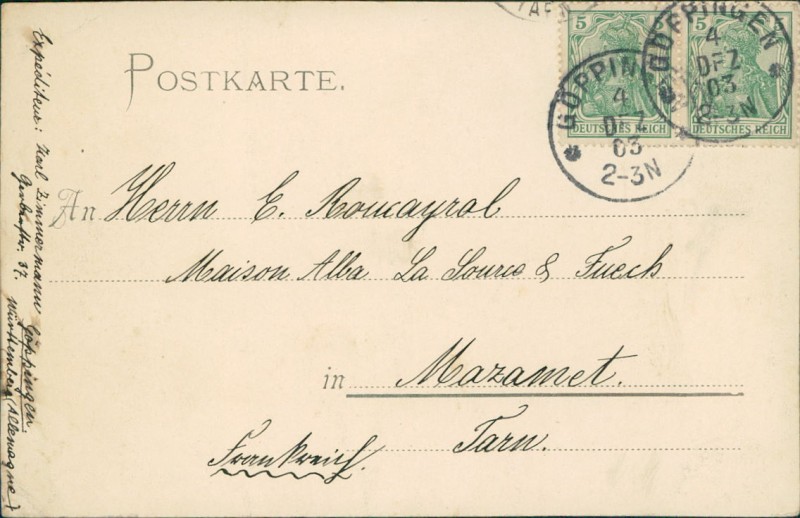 TARN
5 5
5 5
DEUTSCHES REICH DEUTSCHES REICH
GÖPPINGEN
4
DEZ
03
2-3N
GÖPPINGEN
4
DEZ
03
2-3N
POSTKARTE.
An Herrn E. Romayrol
Maison Alba La Source & Fueck
in Mazamet.
Tarn.
Frankreich.
Expéditeur: Karl Zimmermann Göppingen.
37. Württemberg (Allemagne)